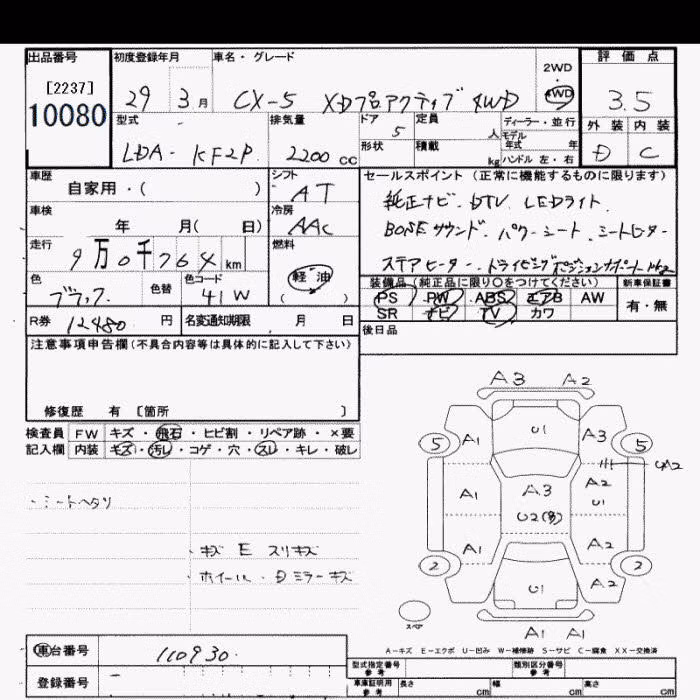 出品番号
[2237]
10080
初度登録年月
29 3月
車名・グレード
CX-5 XDプロアクティブ 4WD
2WD
4WD
評価点
3.5
外装 内装
D C
型式
LDA- KF2P
排気量
2200 cc
ドア
5
形状
定員
人
積載
kg
ディーラー・並行
モデル年式 年
ハンドル 左・右
車歴
自家用・( )
シフト
AT
車検
年 月( 日)
冷房
AAC
走行
9万0千764 km
燃料
軽・油
( )
色
ブラック
色替
色コード
41W
R券 12480 円
名変通知期限 月 日
セールスポイント (正常に機能するものに限ります)
純正ナビ. DTV. LEDライト.
BOSEサウンド. パワーシート. シートヒーター
ステアヒーター. ドライビングポジションサポート
装備品 (純正品に限り○をつけてください)
PS PW ABS エアB AW
SR ナビ TV カワ
新車保証書
有・無
後日品
注意事項申告欄(不具合内容等は具体的に記入して下さい)
修復歴 有 [箇所 ]
検査員 FW キズ・飛石・ヒビ割・リペア跡・×要
記入欄 内装 キズ・汚レ・コゲ・穴・スレ・キレ・破レ
・シートヘタリ
・キズ E スリキズ
・ホイール・Dミラーキズ
A3 A2
5 A1 U1 A3 5
A2
A1 A3 A2
U1
U2(多)
A1 A2
2 U1 A2 2
スペア
A1 A1
A-キズ E-エクボ U-凹み W-補修跡 S-サビ C-腐食 XX-交換済
車台番号 110930
登録番号
型式指定番号 参考
類別区分番号 参考
車庫証明用 参考
長さ cm 幅 cm 高さ cm